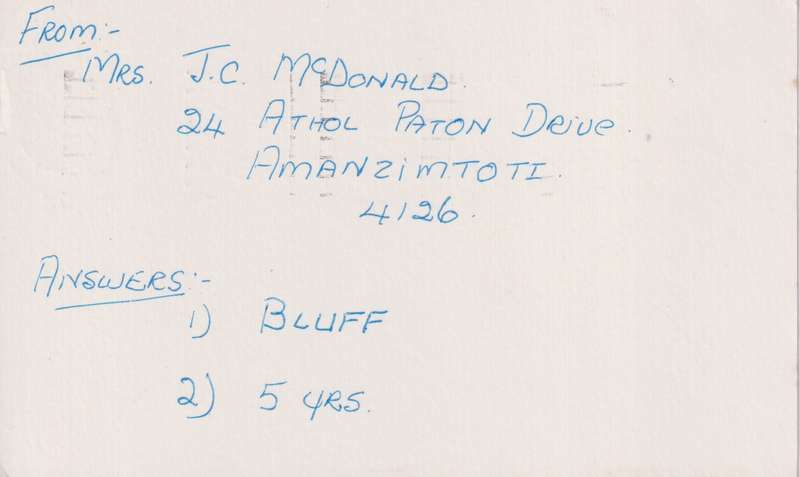 FROM:-
MRS. J.C. McDONALD.
24 ATHOL PATON DRIVE.
AMANZIMTOTI.
4126.
ANSWERS:-
1) BLUFF
2) 5 YRS.